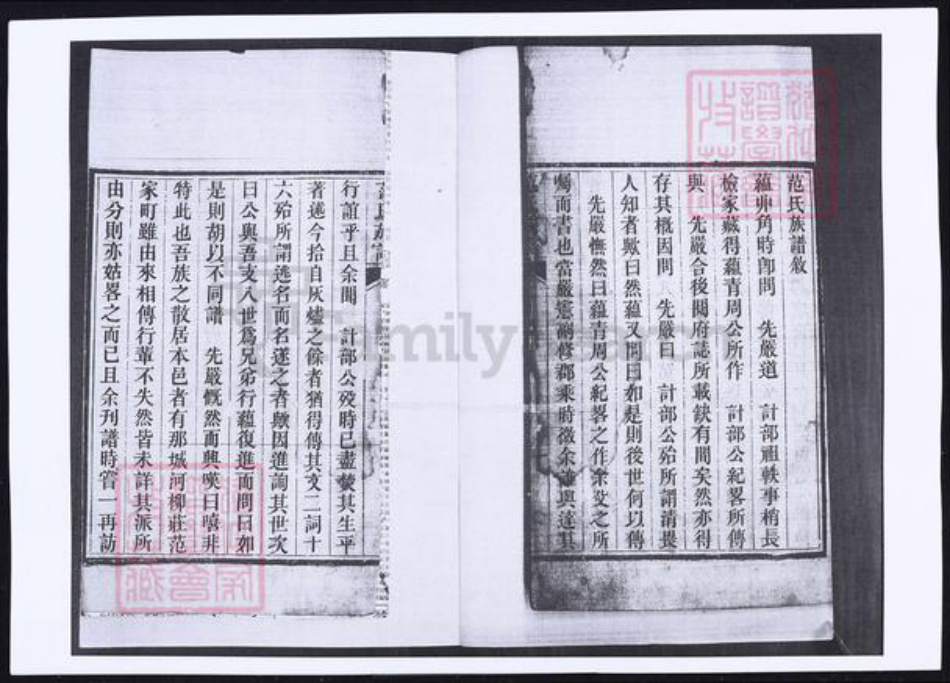 范氏族譜敘
蘊丱角時卽問 先嚴道 計部祖軼事稍長
檢家藏得蘊青周公所作 計部公紀畧所傳
與 先嚴合後閱府誌所載缺有間矣然亦得
存其概因問 先嚴曰 計部公殆所謂清畏
人知者歟曰然蘊又問曰如是則後世何以傳
先嚴憮然曰蘊青周公紀畧之作余父之所
囑而書也當嚴憲副修郡乘時徵余 與達其
行誼乎且余聞 計部公歿時已盡焚其生平
著述今拾自灰燼之餘者猶得傳其文二詞十
六殆所謂逃名而名遂之者歟因進詢其世次
曰公與吾支八世爲兄弟行蘊復進而問曰如
是則胡以不同譜 先嚴慨然而興嘆曰嘻非
特此也吾族之散居本邑者有那城河柳莊范
家町雖由來相傳行輩不失然皆未詳其派所
由分則亦姑畧之而已且余刊譜時嘗一再訪